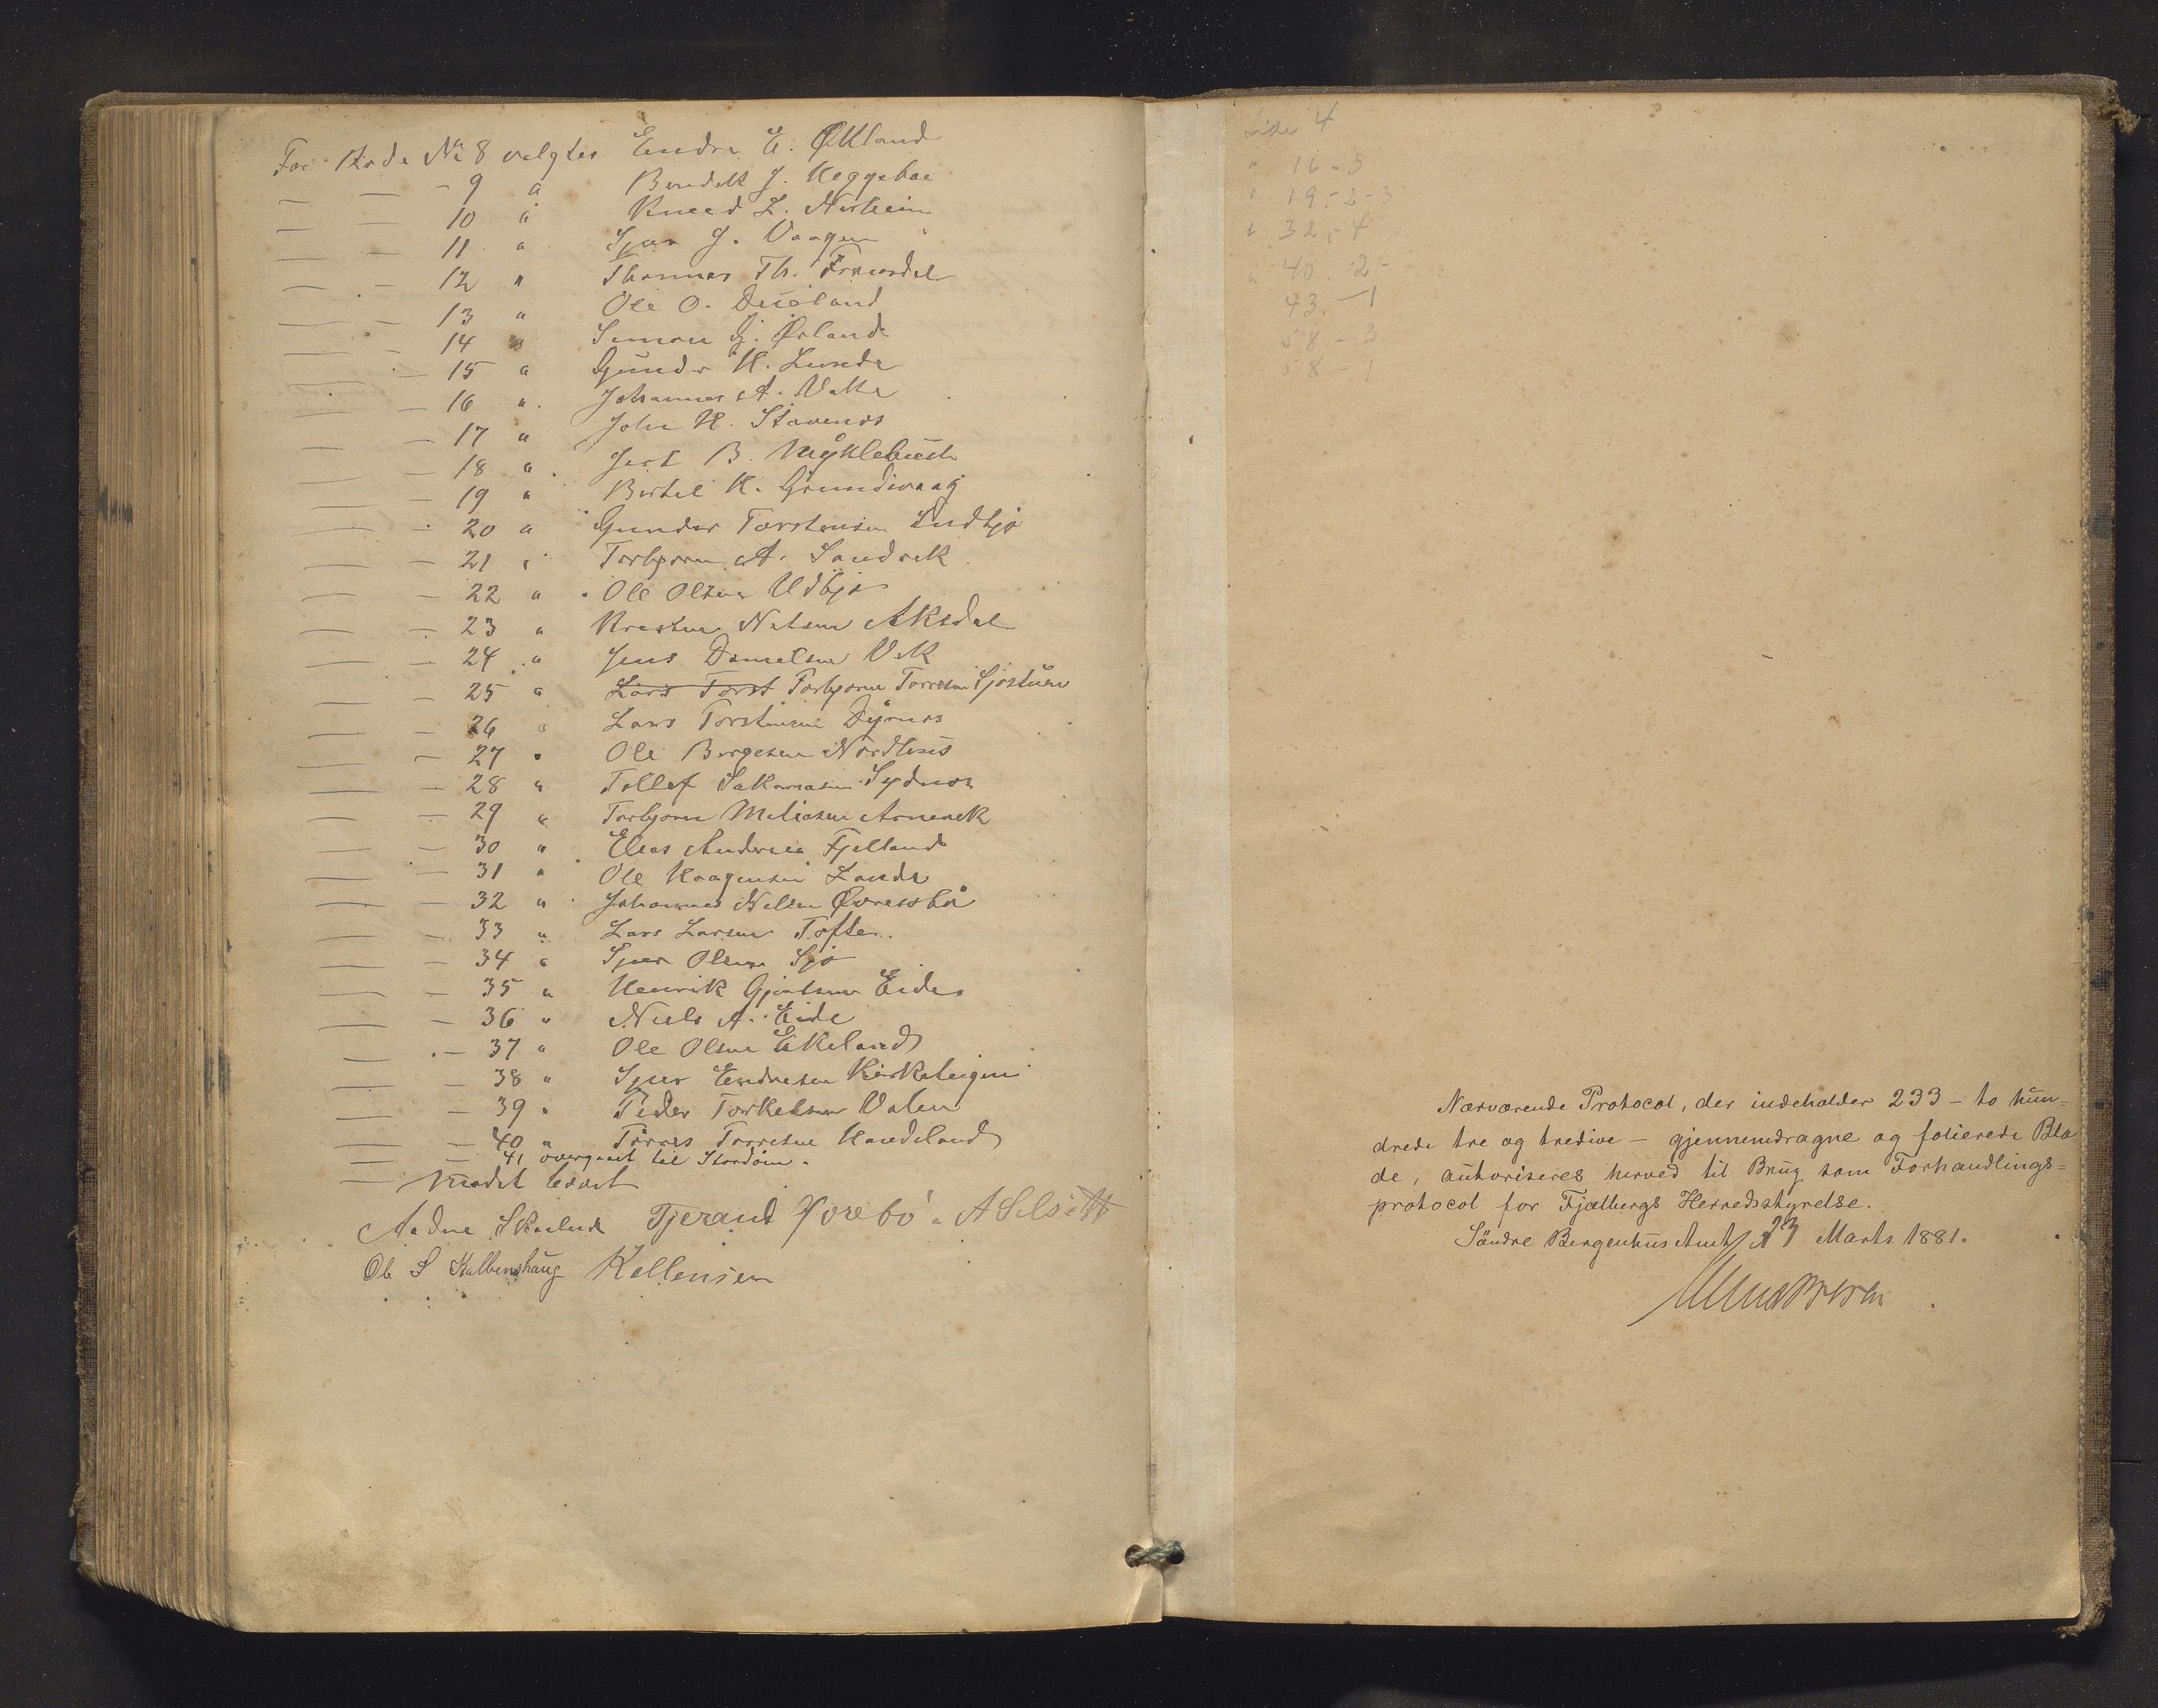 For Rode No 8 valgtes Endre E. Økland
— — - 9 " Bendik J. Heggebøe
— — 10 " Knud L. Nerheim
— — 11 " Sjur J. Vaagen
— — 12 " Thommas Th.
— — 13 " Ole O. Dueland
— — 14 " Simon J. Ørland
— — 15 " Gunder H. Lunde
— — 16 " Johannes A. Vatne
— — 17 " John H. Stavenes
— — 18 " B. Myklebust
— — 19 " Bertel K. Grundevaag
— — 20 " Gunder Torstensen Indbjo
— — 21 " Torbjørn A. Sandvik
— — 22 " Ole Olsen Udbjo
— — 23 " Nilsen Aksdal
— — 24 " Jens Danielsen Vik
— — 25 " Lars Torst Torbjorn Torresen Sjostuen
— — 26 " Lars Torstensen Dyrnes
— — 27 " Ole Borgesen Nordhus
— — 28 " Tollef Sakariasen Sydnes
— — 29 " Torbjorn Arnevik
— — 30 " Elias Andersen Fjelland
— — 31 " Ole Haagensen Lande
— — 32 " Johannes Nilsen
— — 33 " Lars Larsen Tofte.
— — 34 " Sjur Olsen Sjo
— — 35 " Henrik Eide
— — 36 " Niels A. Eide
— — 37 " Ole Olsen Ekeland
— — 38 " Sjur Endresen Kirketeigen
— — 39 " Peder Torkelsen Valen
— — 40 " Tørres Torresen Handeland
— — 41 overgaaet til Stordöen.
Mødet hævet
Aadne Skaalnes Tjerand Yrebö. A Selsøtt
Ole S Kalbenshaug Kellensen
Side 4
" 16 - 3
" 19 - 2 - 3
" 32 - 4
" 40 - 2 -
43 - 1
58 - 3
58 - 1
Nærværende Protocol, der indeholder 233 - to hun=
drede tre og tredive - gjennemdragne og folierede Bla=
de, autoriseres herved til Brug som Forhandlings=
protocol for Fjælbergs Herredsstyrelse.
Söndre Bergenhus Amt, 23 Marts 1881.